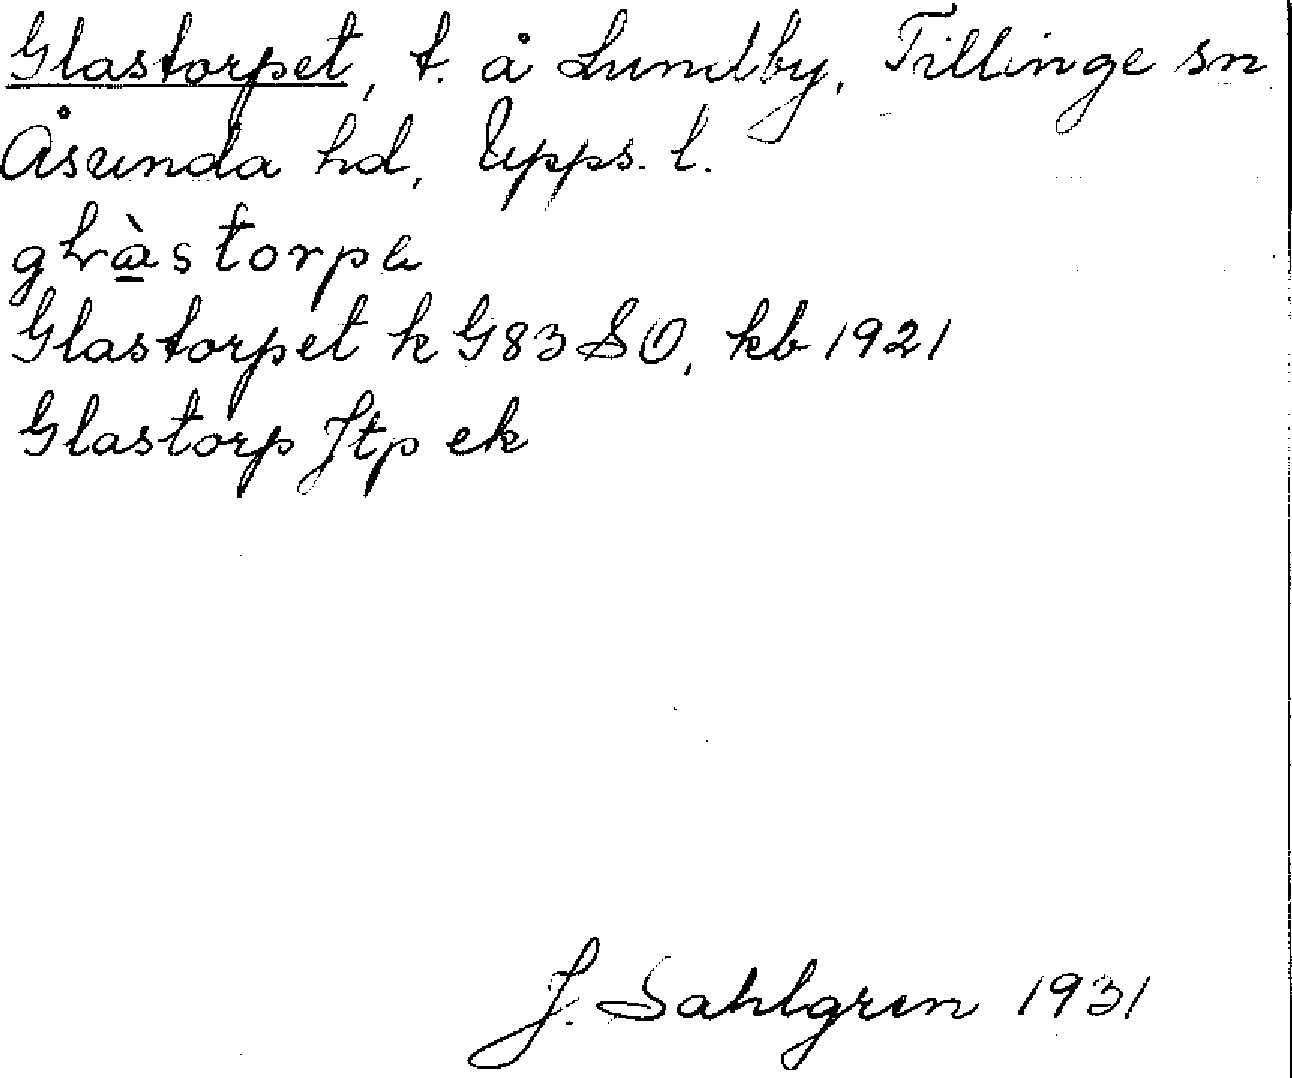 Glastorpet, t. å Lundby, Tillinge sn
Åsunda hd, Upps. l.
Glastorpet k G83 SO, kb 1921
Glastorp Jtp ek
J. Sahlgren 1931